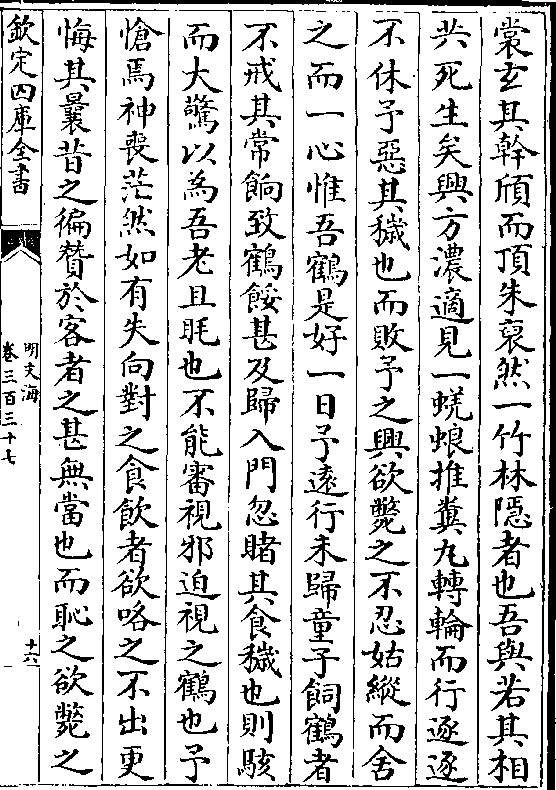 裳玄其幹頎而頂朱裒然一竹林隱者也吾與若其相
共死生矣興方濃適見一蜣蜋推糞丸轉輪而行逐逐
不休予惡其穢也而敗予之興欲斃之不忍姑縱而舍
之而一心惟吾鶴是好一日予逺行未歸童子飼鶴者
不戒其常餉致鶴餒甚及歸入門忽睹其食穢也則駭
而大驚以為吾老且眊也不能審視邪迫視之鶴也予
愴焉神喪茫然如有失向對之食飲者欲咯之不出更
悔其曩昔之徧贊於客者之甚無當也而恥之欲斃之
欽定四庫全書
明文海
卷三百三十七
十六